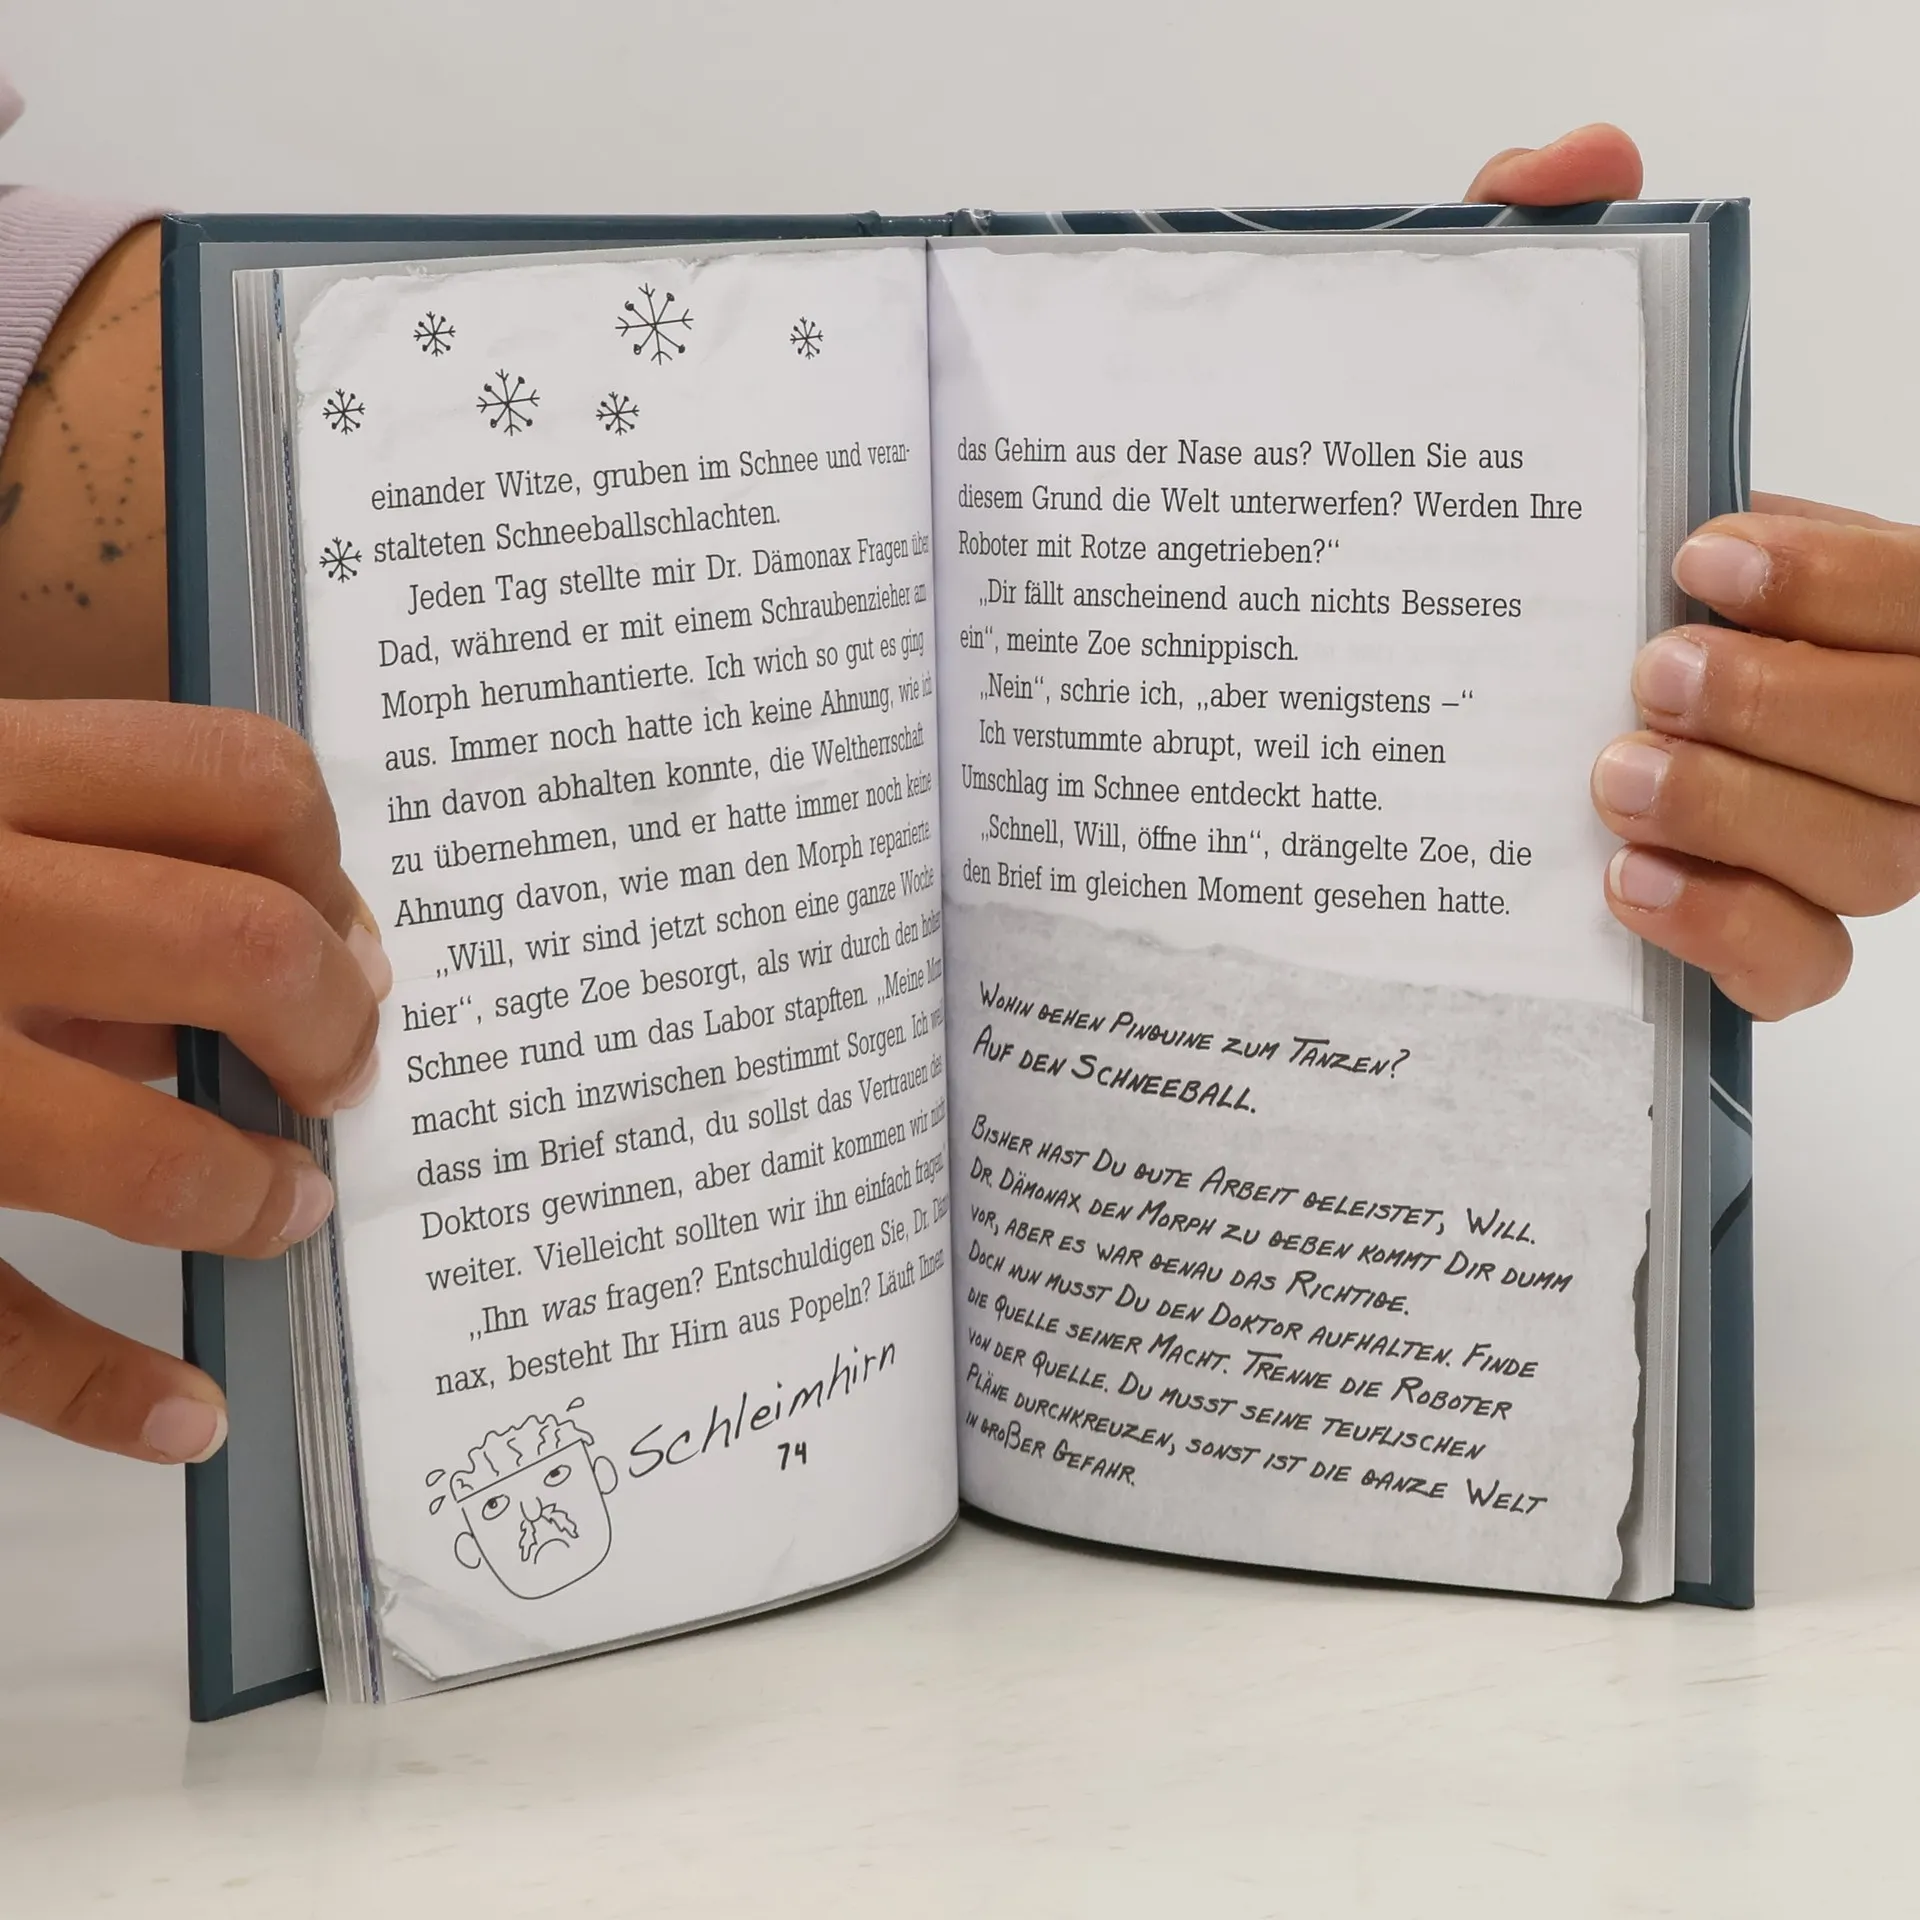 einander Witze, gruben im Schnee und veran-
stalteten Schneeballschlachten.
Jeden Tag stellte mir Dr. Dämonax Fragen über
Dad, während er mit einem Schraubenzieher am
Morph herumhantierte. Ich wich so gut es ging
aus. Immer noch hatte ich keine Ahnung, wie ich
ihn davon abhalten konnte, die Weltherrschaft
zu übernehmen, und er hatte immer noch keine
Ahnung davon, wie man den Morph reparierte.
„Will, wir sind jetzt schon eine ganze Woche
hier“, sagte Zoe besorgt, als wir durch den hohen
Schnee rund um das Labor stapften. „Meine Mom
macht sich inzwischen bestimmt Sorgen. Ich weiß,
dass im Brief stand, du sollst das Vertrauen des
Doktors gewinnen, aber damit kommen wir nicht
weiter. Vielleicht sollten wir ihn einfach fragen.“
„Ihn was fragen? Entschuldigen Sie, Dr. Dämo-
nax, besteht Ihr Hirn aus Popeln? Läuft Ihnen
Schleimhirn
74
das Gehirn aus der Nase aus? Wollen Sie aus
diesem Grund die Welt unterwerfen? Werden Ihre
Roboter mit Rotze angetrieben?“
„Dir fällt anscheinend auch nichts Besseres
ein“, meinte Zoe schnippisch.
„Nein“, schrie ich, „aber wenigstens –“
Ich verstummte abrupt, weil ich einen
Umschlag im Schnee entdeckt hatte.
„Schnell, Will, öffne ihn“, drängelte Zoe, die
den Brief im gleichen Moment gesehen hatte.
Wohin gehen Pinguine zum Tanzen?
Auf den Schneeball.
Bisher hast Du gute Arbeit geleistet, Will.
Dr. Dämonax den Morph zu geben kommt Dir dumm
vor, aber es war genau das Richtige.
Doch nun musst Du den Doktor aufhalten. Finde
die Quelle seiner Macht. Trenne die Roboter
von der Quelle. Du musst seine teuflischen
Pläne durchkreuzen, sonst ist die ganze Welt
in großer Gefahr.